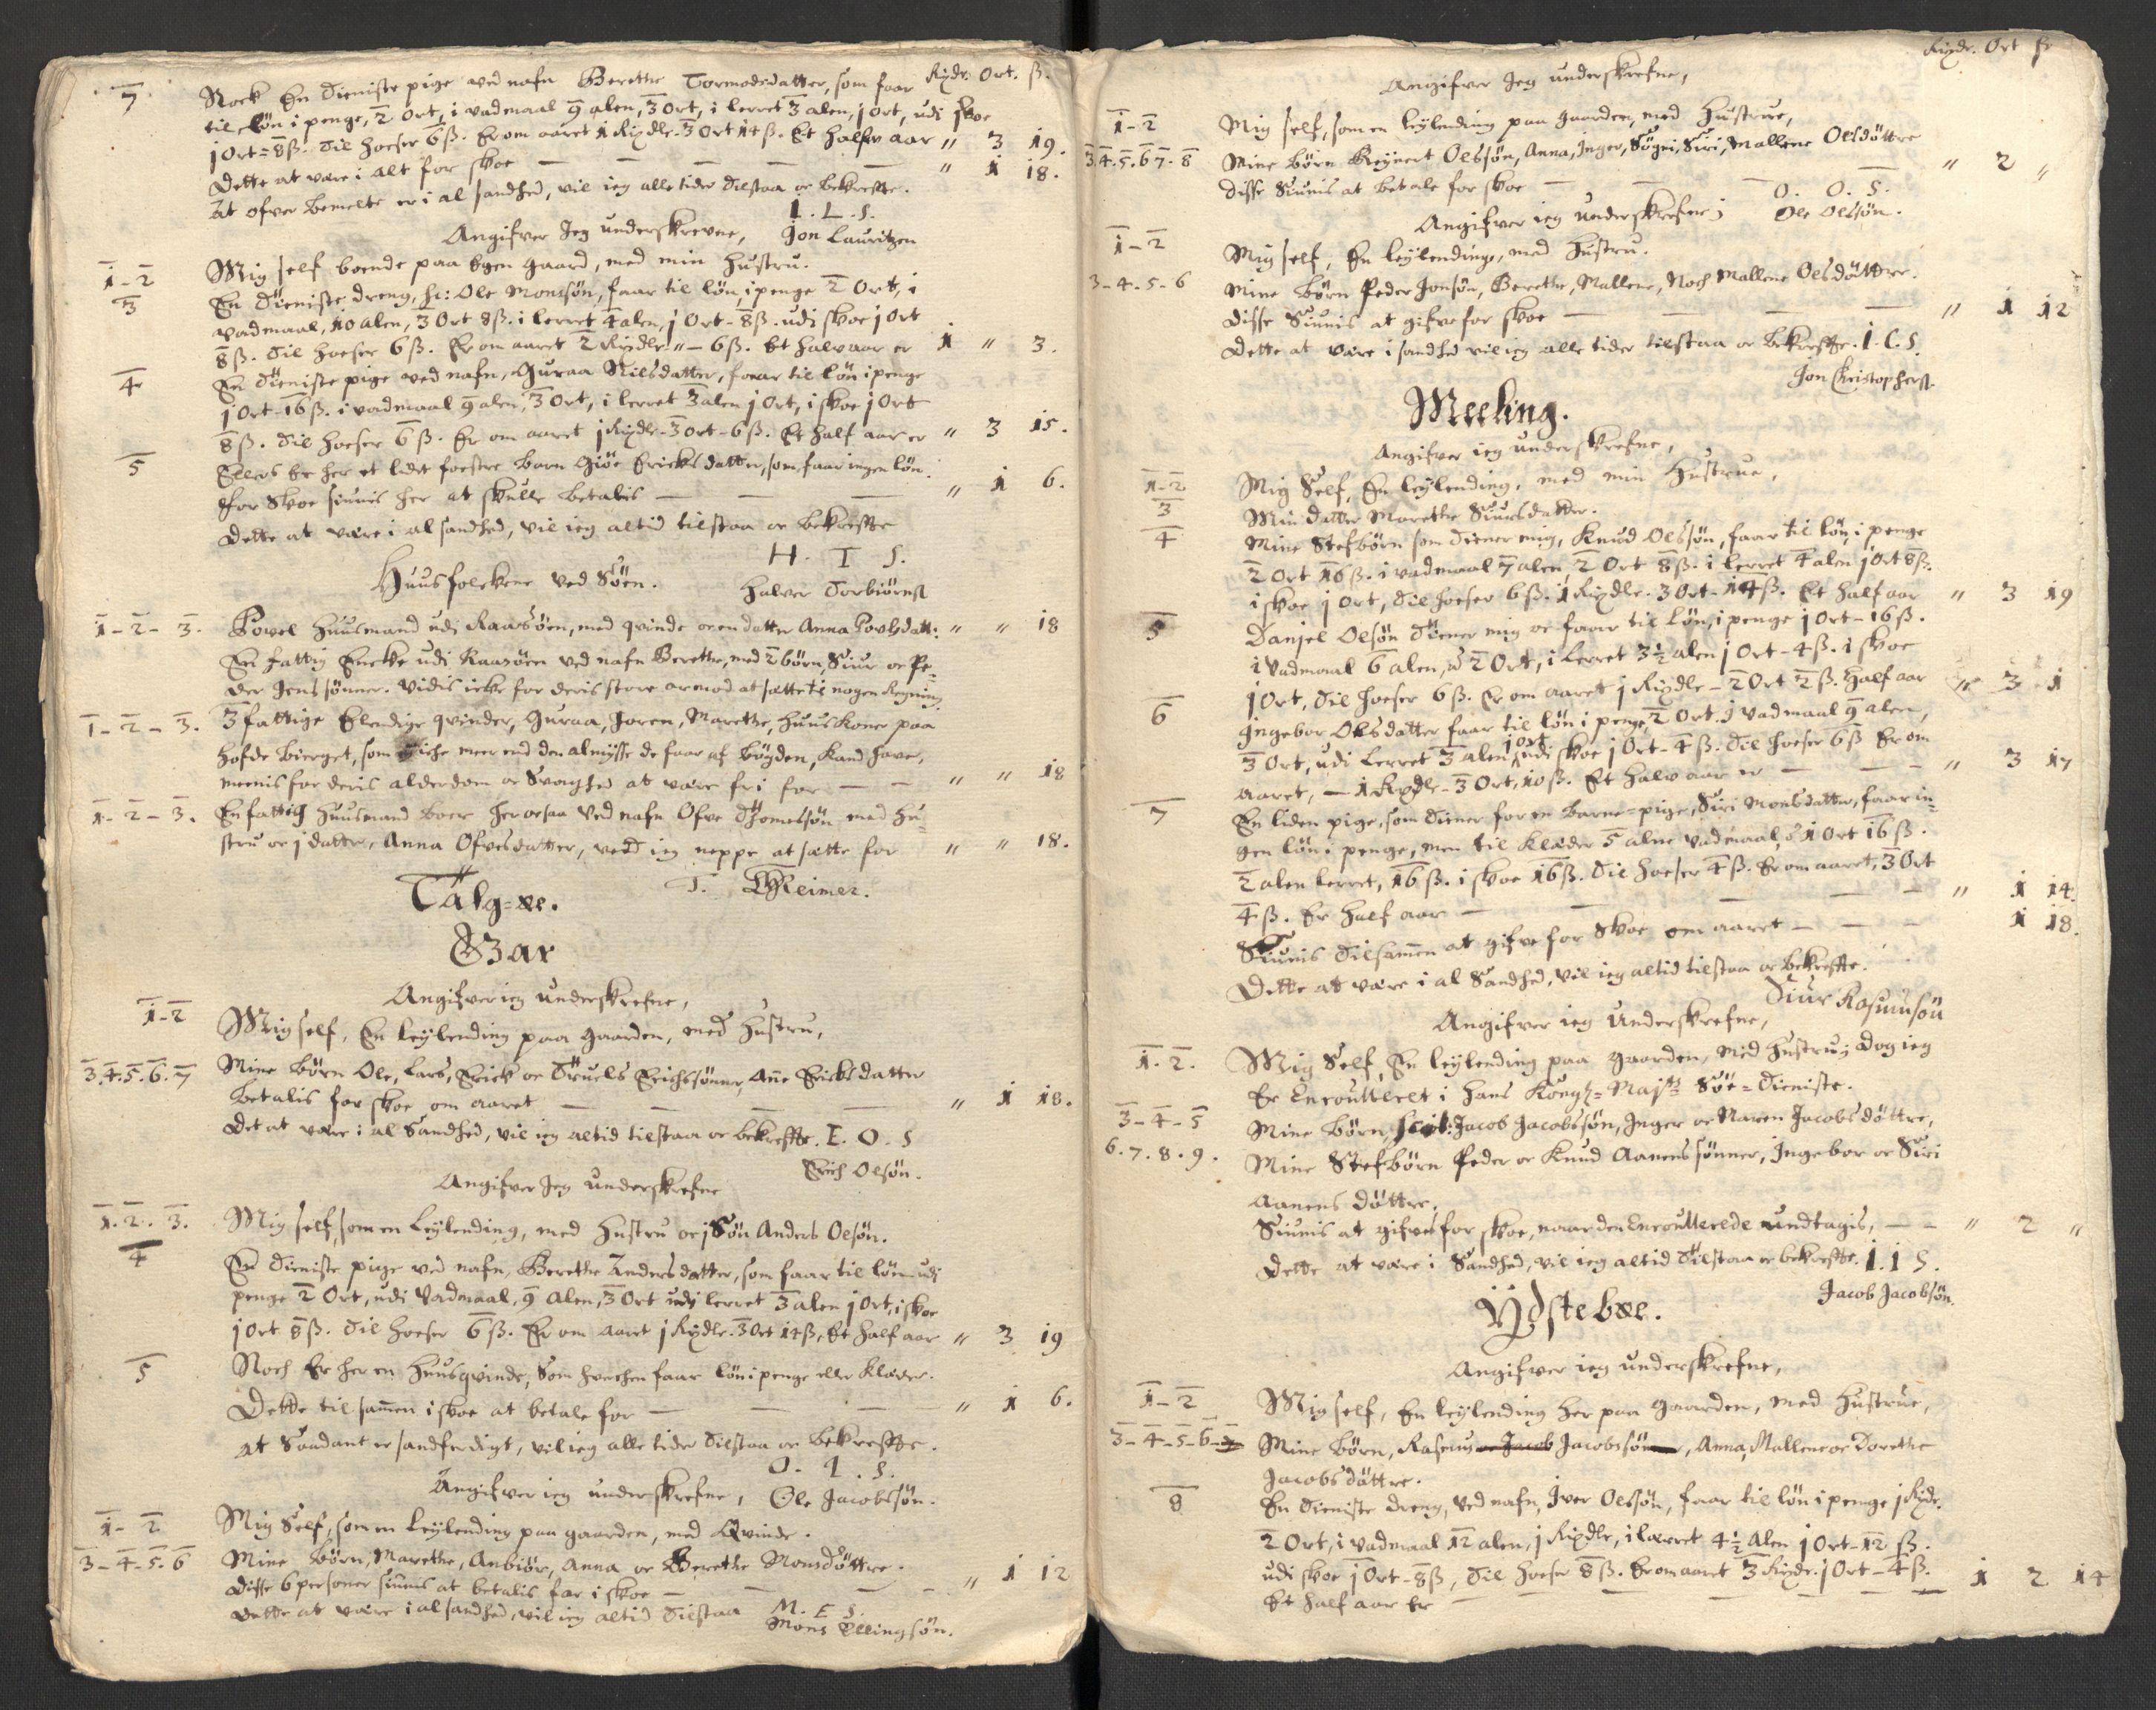 Rixdr. Ort. ß.
7 Nock En Dieniste pige ved nafn Berethe Tormodsdatter, som faar
til løn i penge, 2 Ort, i vadmaal 9 alen, 3 Ort, i lerret 3 alen, j Ort, udi skoe
j Ort = 8 ß. Til hoeser 6 ß. Er om aaret 1 Rixdlr. 3 Ort 14 ß. Et halfv aar " 3 19.
Dette at være i alt for skoe — — — — " 1 18.
At ofver bemelte er i al sandhed, vil ieg alle tider Tilstaa oc bekreffte.
I. L. S.
Angifver Jeg underskrevne, Jon Lauritzen
1-2 Mig self boende paa Egen gaard, med min Hustru.
3 En Dieniste dreng, h: Ole Monssøn, faar til løn, i penge 2 Ort, i
vadmaal, 10 alen, 3 Ort 8 ß. i lerret 4 alen, j Ort - 8 ß. udi skoe j Ort
8 ß. Til hoeser 6 ß. Er om aaret 2 Rixdlr. " - 6 ß. Et halv aar er 1 " 3.
4 En Dieniste pige ved nafn, Guraa Nilsdatter, faar til løn i penge
j Ort - 16 ß. i vadmaal 9 alen, 3 Ort, i lerret 3 alen j Ort, i skoe j Ort
8 ß. Til hoeser 6 ß. Er om aaret j Rixdlr - 3 Ort - 6 ß. Et half aar er " 3 15.
5 Ellers Er her et lidet fostre barn Giøe Ericksdatter, som faar ingen løn.
For Skoe siunis her at skulle betalis — — " 1 6.
Dette at være i al sandhed, vil ieg altid tilstaa oc bekreffte
H. T S.
Huusfolckene ved Søen. Halver Torbiørns.
1-2-3. Povel Huusmand udi Raasøen, med qvinde oc en datter Anna Povlsdatt: " " 18
En fattig Encke udi Raasøen ved nafn Berethe, med 2 børn, Siur oc Pe-
der Jens sønner. Vidis icke for deris store armod at sætte til nogen Regning.
1-2-3. 3 fattige Elendige qvinder, Guraa, Joren, Marethe, huus koner paa
Hofde bierget, som iche meer end den almysse de faar af bøyden, kand have,
meenis for deris alderdom oc Svaghed at være fri for — — " " 18
1-2-3. En fattig Huusmand boer her ocsaa ved nafn Ofve Thomessøn med Hu-
stru oc j datter, Anna Ofvesdatter, ved ieg neppe at sætte for " " 18.
T. Reimer.
Talg-øe.
Gar
Angifver ieg underskrefne,
1-2 Mig self, En leylending paa gaarden, med Hustru,
3.4.5.6.7 Mine børn Ole, Lars, Erick oc Truels Erichssønner, Ane Ericksdatter
betalis for skoe om aaret — — — " 1 18.
Det at være i al Sandhed, vil ieg altid tilstaa oc bekreffte. E. O. S
Erich Olsøn.
Angifver Jeg underskrefne
1.2.3. Mig self, som en leylending, med Hustru oc j Søn Anders Olsøn.
4 En Dieniste pige ved nafn, Berethe Andersdatter, som faar til løn udj
penge 2 Ort, udi vadmaal, 9 Alen, 3 Ort udj lerret 3 alen j Ort, i skoe
j Ort 8 ß. Til hoeser 6 ß. Er om aaret j Rixdlr. 3 Ort 14 ß, Et half aar " 3 19
5 Noch Er her en Huusqvinde, Som hverchen faar løn i penge eller klæder.
Dette til samen i skoe at betale for — — — " 1 6.
at Saadant er sandferdigt, vil ieg alle tider Tilstaa oc bekreffte.
O. I. S.
Angifver ieg underskrefne, Ole Jacobssøn.
1-2 Mig Self, som en leylending paa gaarden, med Qvinde.
3-4-5-6 Mine børn, Marethe, Anbiør, Anna oc Berethe Monsdøttre.
Disse 6 personer siunis at betalis for i skoe — — " 1 12
Dette at være i al sandhed, vil ieg altid Tilstaa M. E S.
Mons Ellingsøn.
Rixdr. Ort ß
Angifver Jeg underskrefne,
1-2 Mig self, som en leylending paa gaarden, med Hustrue,
3.4.5.6.7.8 Mine børn Reynert Olssøn, Anna, Inger, Søgni, Siri, Mallene Olsdøttre
Disse Siunis at betale for skoe — — " 2 "
O. O. S.
Angifver ieg underskrefne; Ole Olssøn.
1-2 Mig self, En leylending, med Hustru.
3-4-5-6 Mine børn Peder Jonsøn, Berethe, Mallene, Noch Mallene Olsdøttre.
Disse Siunis at gifve for skoe — — — " 1 12
Dette at være i sandhed vil ieg alle tider tilstaa oc bekreffte. I. C. S.
Jon Christophers.
Meeling.
Angifver ieg underskrefne,
1-2 Mig Self, En leylending, med min Hustrue,
3 Min datter Marethe Siursdatter.
4 Mine Stefbørn som Tiener mig, Knud Olssøn, faar til løn, i penge
2 Ort 16 ß. i vadmaal 7 alen, 2 Ort 8 ß. i lerret 4 alen j Ort 8 ß.
i skoe j Ort, Til hoeser 6 ß. 1 Rixdlr. 3 Ort - 14 ß. Et half aar " 3 19
5 Danjel Olsøn Tiener mig oc faar til løn, i penge j Ort - 16 ß.
i vadmaal 6 alen, 2 Ort, i lerret 3½ alen j Ort - 4 ß. i skoe
j Ort, Til hoeser 6 ß. Er om aaret j Rixdlr - 2 Ort 2 ß. Half aar " 3 1
6 Ingebor Olsdatter faar til løn i penge, 2 Ort. i vadmaal 9 alen,
3 Ort, udi lerret 3 alen j ort, udi skoe j Ort - 4 ß. Til hoeser 6 ß Er om
aaret, — 1 Rixdlr - 3 Ort, 10 ß. Et halv aar er — — — " 3 17
7 En liden pige, som Tiener for en barne-pige, Siri Monsdatter, faar in-
gen løn i penge, men til klæder 5 alne vadmaal, 1 Ort 16 ß.
2 alen lerret, 16 ß. i skoe 16 ß. Til hoeser 4 ß. Er om aaret, 3 Ort
4 ß. Er half aar — — — " 1 14.
Siunis Tilsamen at gifve for Skoe om aaret — — — 1 18.
Dette at være i al Sandhed, vil ieg altid tilstaa oc bekreffte.
Siur Rasmusøn
Angifver ieg underskrefne,
1.2. Mig Self, En leylending paa gaarden, med Hustru; Dog ieg
Er Enroulleret i Hans Kongl- Majts Søe-Tieniste.
3-4-5 Mine børn, Jacob Jacobssøn, Inger oc Maren Jacobsdøttre,
6.7.8.9. Mine Stefbørn Peder oc Knud Aanenssønner, Ingebor oc Siri
Aanens døttre.
Siunis at gifves for skoe, naar den Enroullerede undtagis, — — " 2 "
Dette at være i Sandhed, vil ieg altid Tilstaa oc bekreffte. I. I S.
Jacob Jacobsøn.
Ydstebøe.
Angifver ieg underskrefne,
1-2 Mig self, En leylending her paa gaarden, med Hustrue,
3-4-5-6-7 Mine børn, Rasmus oc Jacob Jacobssønner, Anna, Mallene oc Dorethe
Jacobsdøttre.
8 En Dieniste dreng, ved nafn, Iver Olssøn, faar til løn i penge j Rixdr.
2 Ort, i vadmaal 12 alen, j Rixdlr, i lærret 4½ Alen j Ort - 12 ß.
udi skoe j Ort - 8 ß, Til hoeser 8 ß. Er om aaret 3 Rixdr. j Ort - 4 ß.
Et half aar Er — — — — 1 2 14